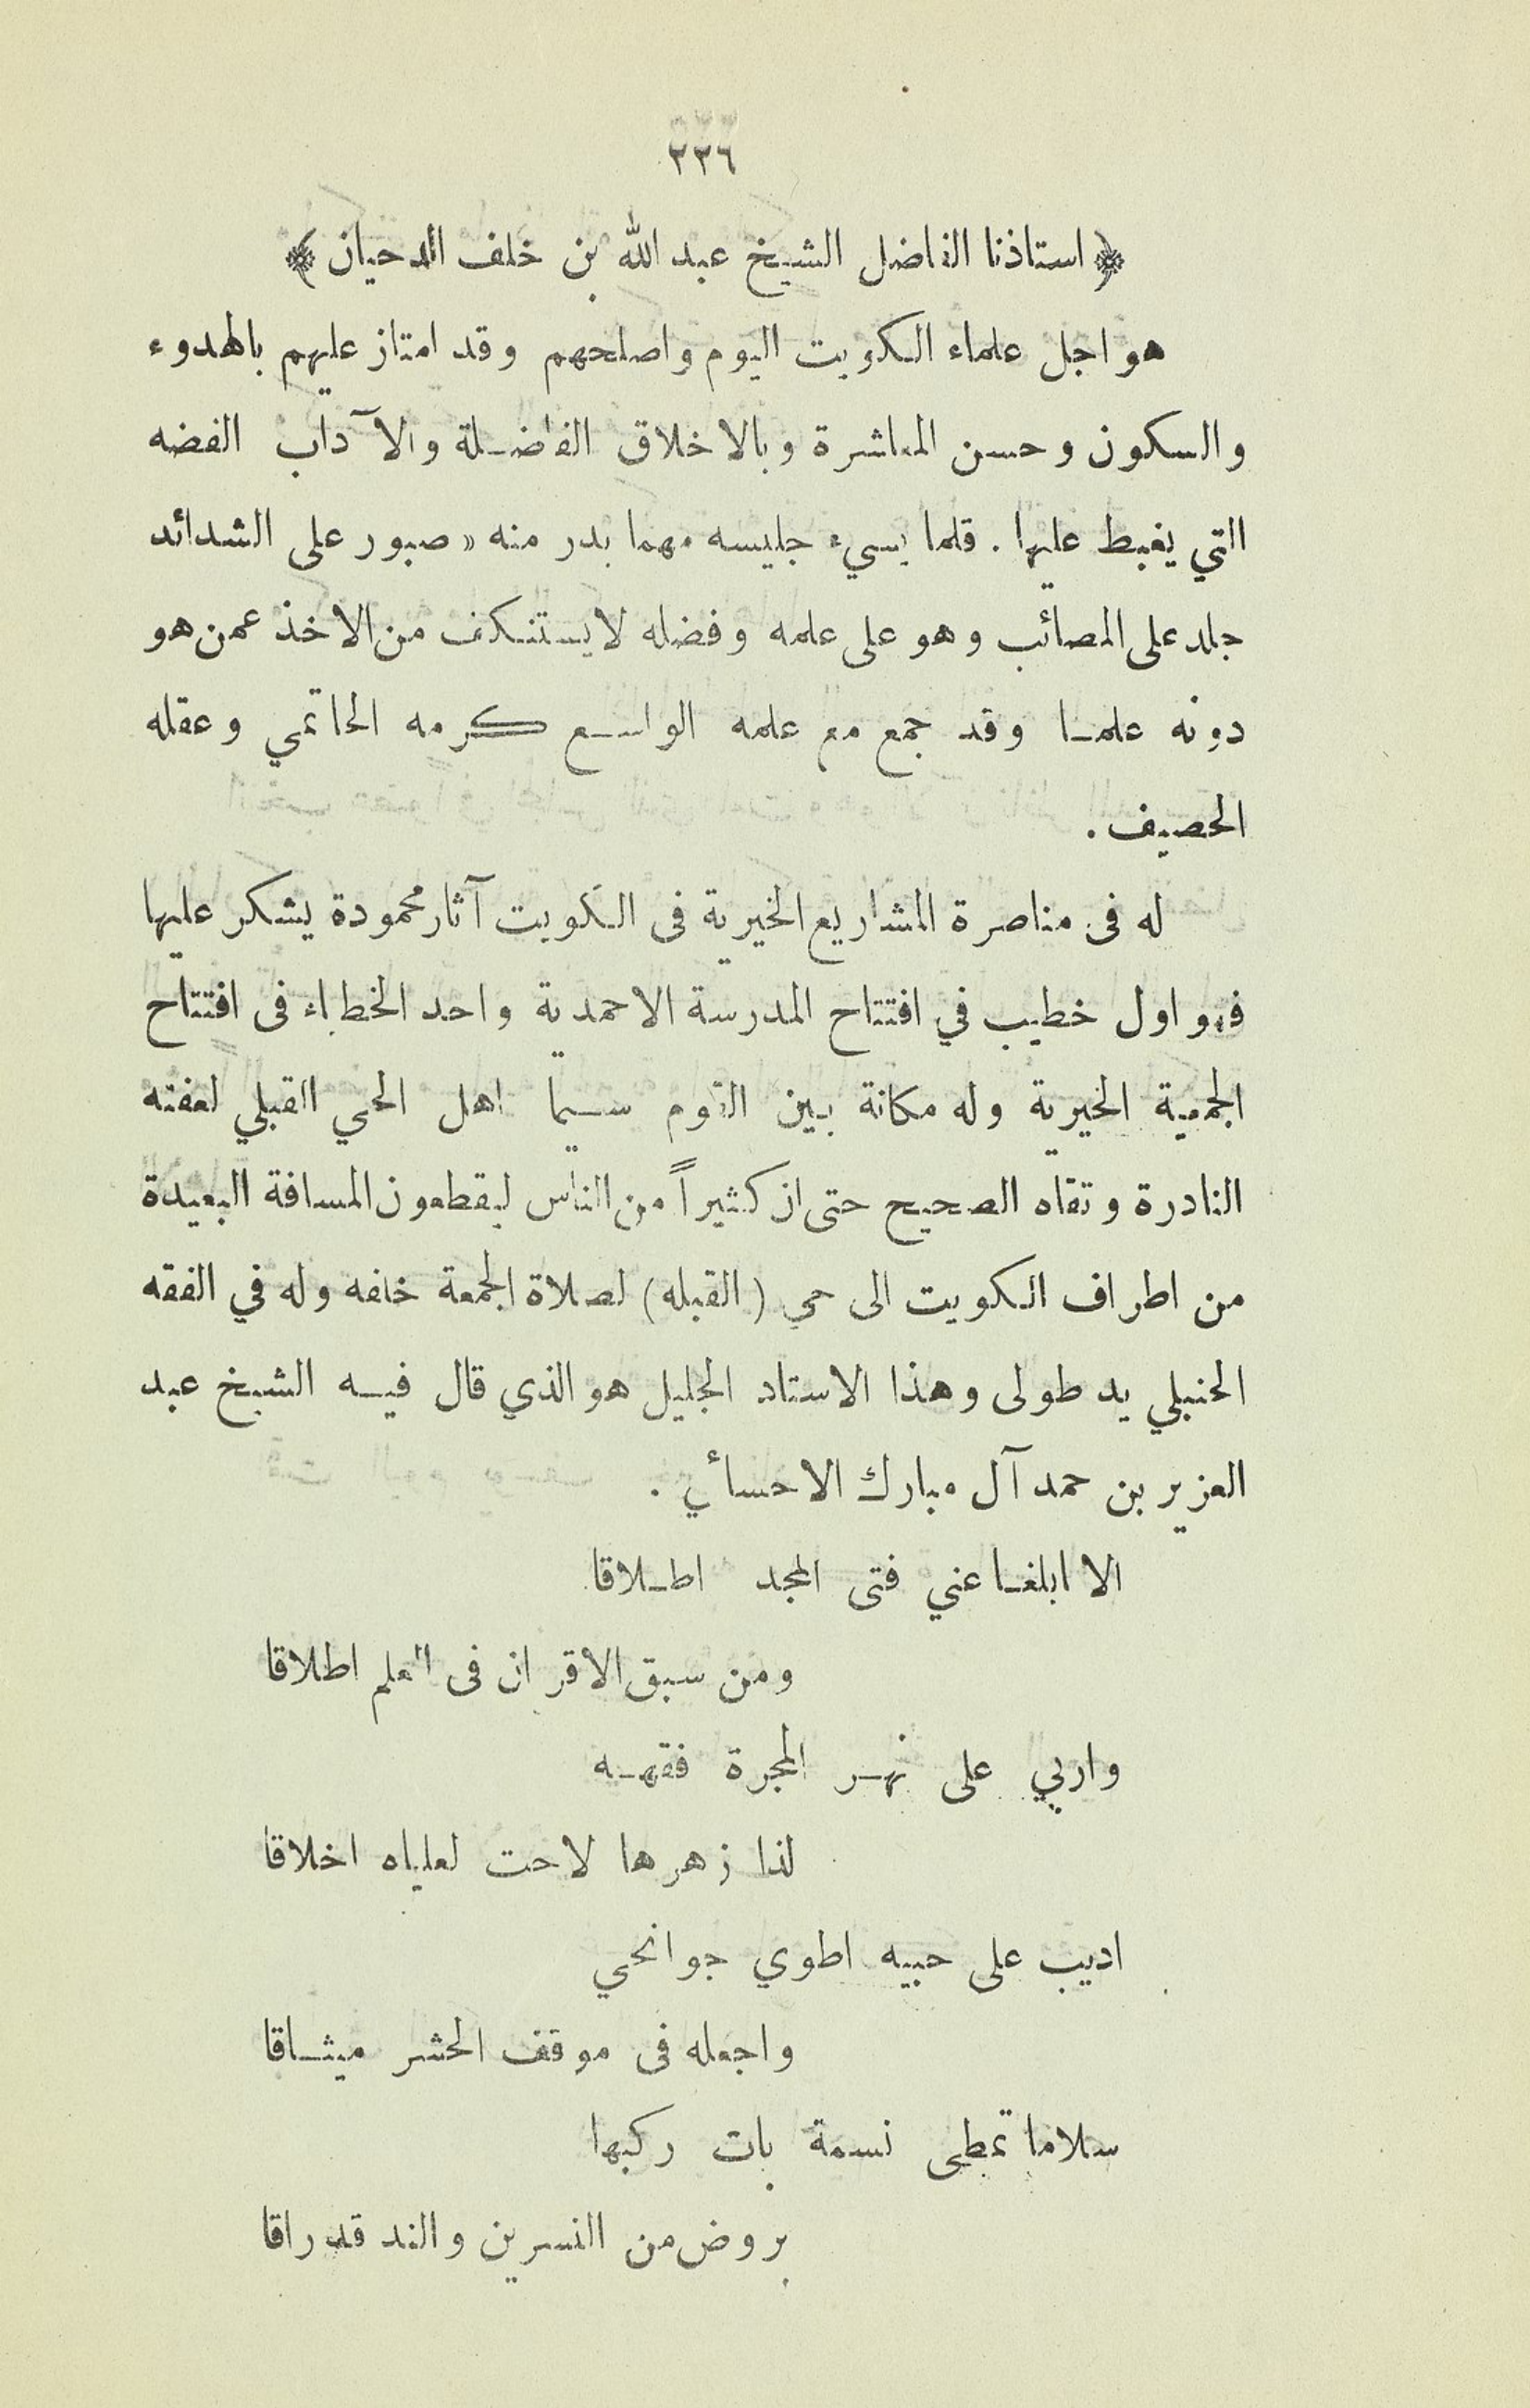 ٢٣٦
﴿ استاذنا الفاضل الشيخ عبد الله بن خلف الدحيان ﴾
هو اجل علماء الكويت اليوم واصلحهم وقد امتاز عليهم بالهدوء
والسكون وحسن المعاشرة وبالاخلاق الفاضلة والآداب الغضه
التي يغبط عليها . قلما يسيء جليسه مهما بدر منه « صبور على الشدائد
جلد على المصائب وهو على علمه وفضله لا يستنكف من الاخذ عمن هو
دونه علما وقد جمع مع علمه الواسع كرمه الحاتمي وعقله
الحصيف .
له فى مناصرة المشاريع الخيرية فى الكويت آثار محمودة يشكر عليها
فهو اول خطيب في افتتاح المدرسة الاحمدية واحد الخطباء فى افتتاح
الجمعية الخيرية وله مكانة بين القوم سيما اهل الحي القبلي لعفته
النادرة وتقاه الصحيح حتى ان كثيراً من الناس ليقطعون المسافة البعيدة
من اطراف الكويت الى حي ( القبله ) لصلاة الجمعة خلفه وله في الفقه
الحنبلي يد طولى وهذا الاستاد الجليل هو الذي قال فيه الشيخ عبد
العزيز بن حمد آل مبارك الاحسائي .
الا ابلغا عني فتى المجد اطلاقا
ومن سبق الاقران فى العلم اطلاقا
واربي على نهر المجرة فقهه
لذا زهرها لاحت لعلياه اخلاقا
اديب على حبيه اطوي جوانحي
واجعله فى موقف الحشر ميثاقا
سلاما تمطى نسمة بات ركبها
بروض من النسرين والند قد راقا